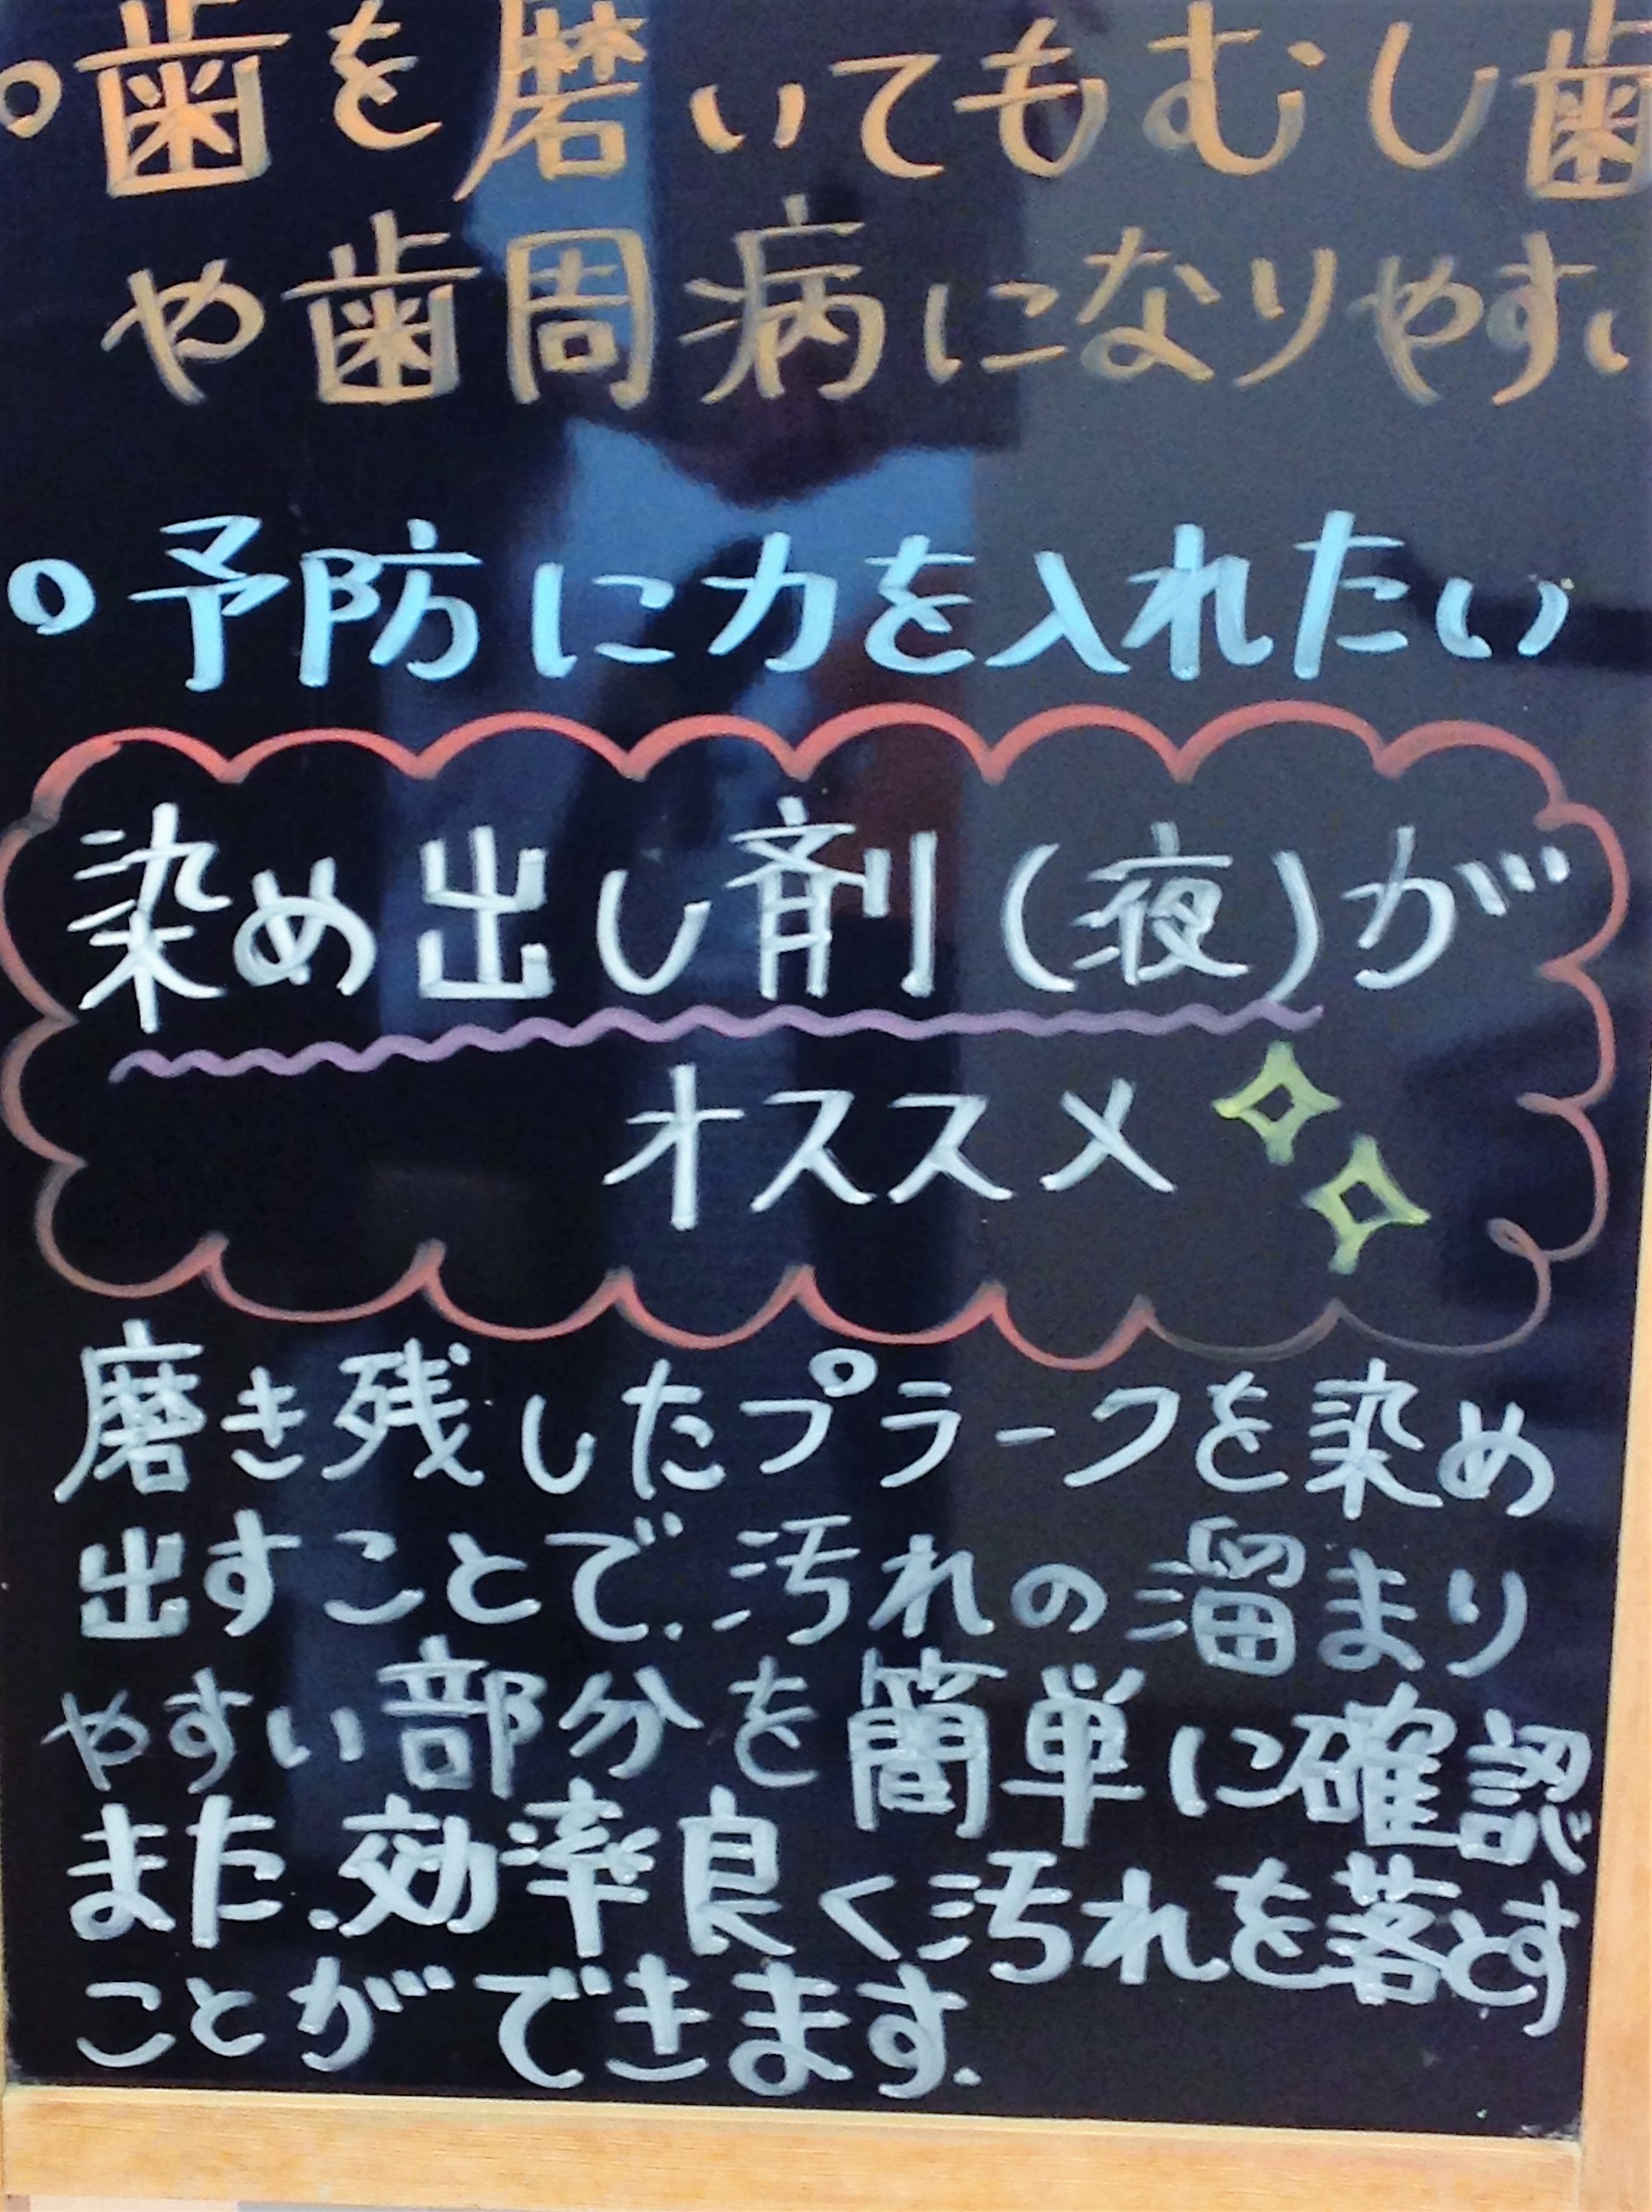 ○歯を磨いてもむし歯
や歯周病になりやすい
○予防に力を入れたい
染め出し剤(液)が
オススメ
磨き残したプラークを染め
出すことで、汚れの溜まり
やすい部分を簡単に確認
また、効率良く汚れを落とす
ことができます。